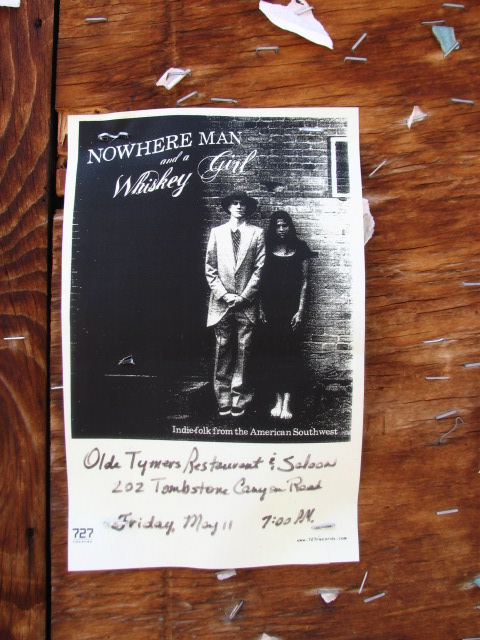 NOWHERE MAN
and a
Whiskey Girl
Indie-folk from the American Southwest
Olde Tymers Restaurant & Saloon
202 Tombstone Canyon Road
Friday, May 11 7:00 P.M.
727
records
www.727records.com